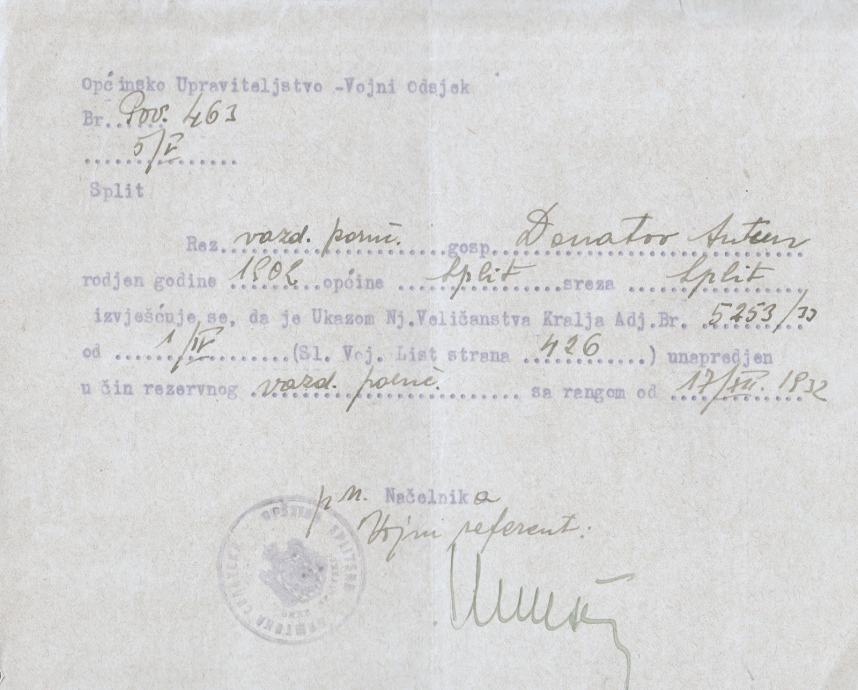 Općinsko Upraviteljstvo -Vojni Odsjek
Br. Pov. 463
5/V
Split
Rez. vazd. poruč. gosp. Donator Antun
rodjen godine 1902 općine Split sreza Split
izvješćuje se, da je Ukazom Nj.Veličanstva Kralja Adj.Br. 5253/33
od 1/IV (Sl. Voj. List strana 426 ) unapredjen
u čin rezervnog vazd. poruč. sa rangom od 17/XII. 1932
p n. Načelnika
Vojni referent: